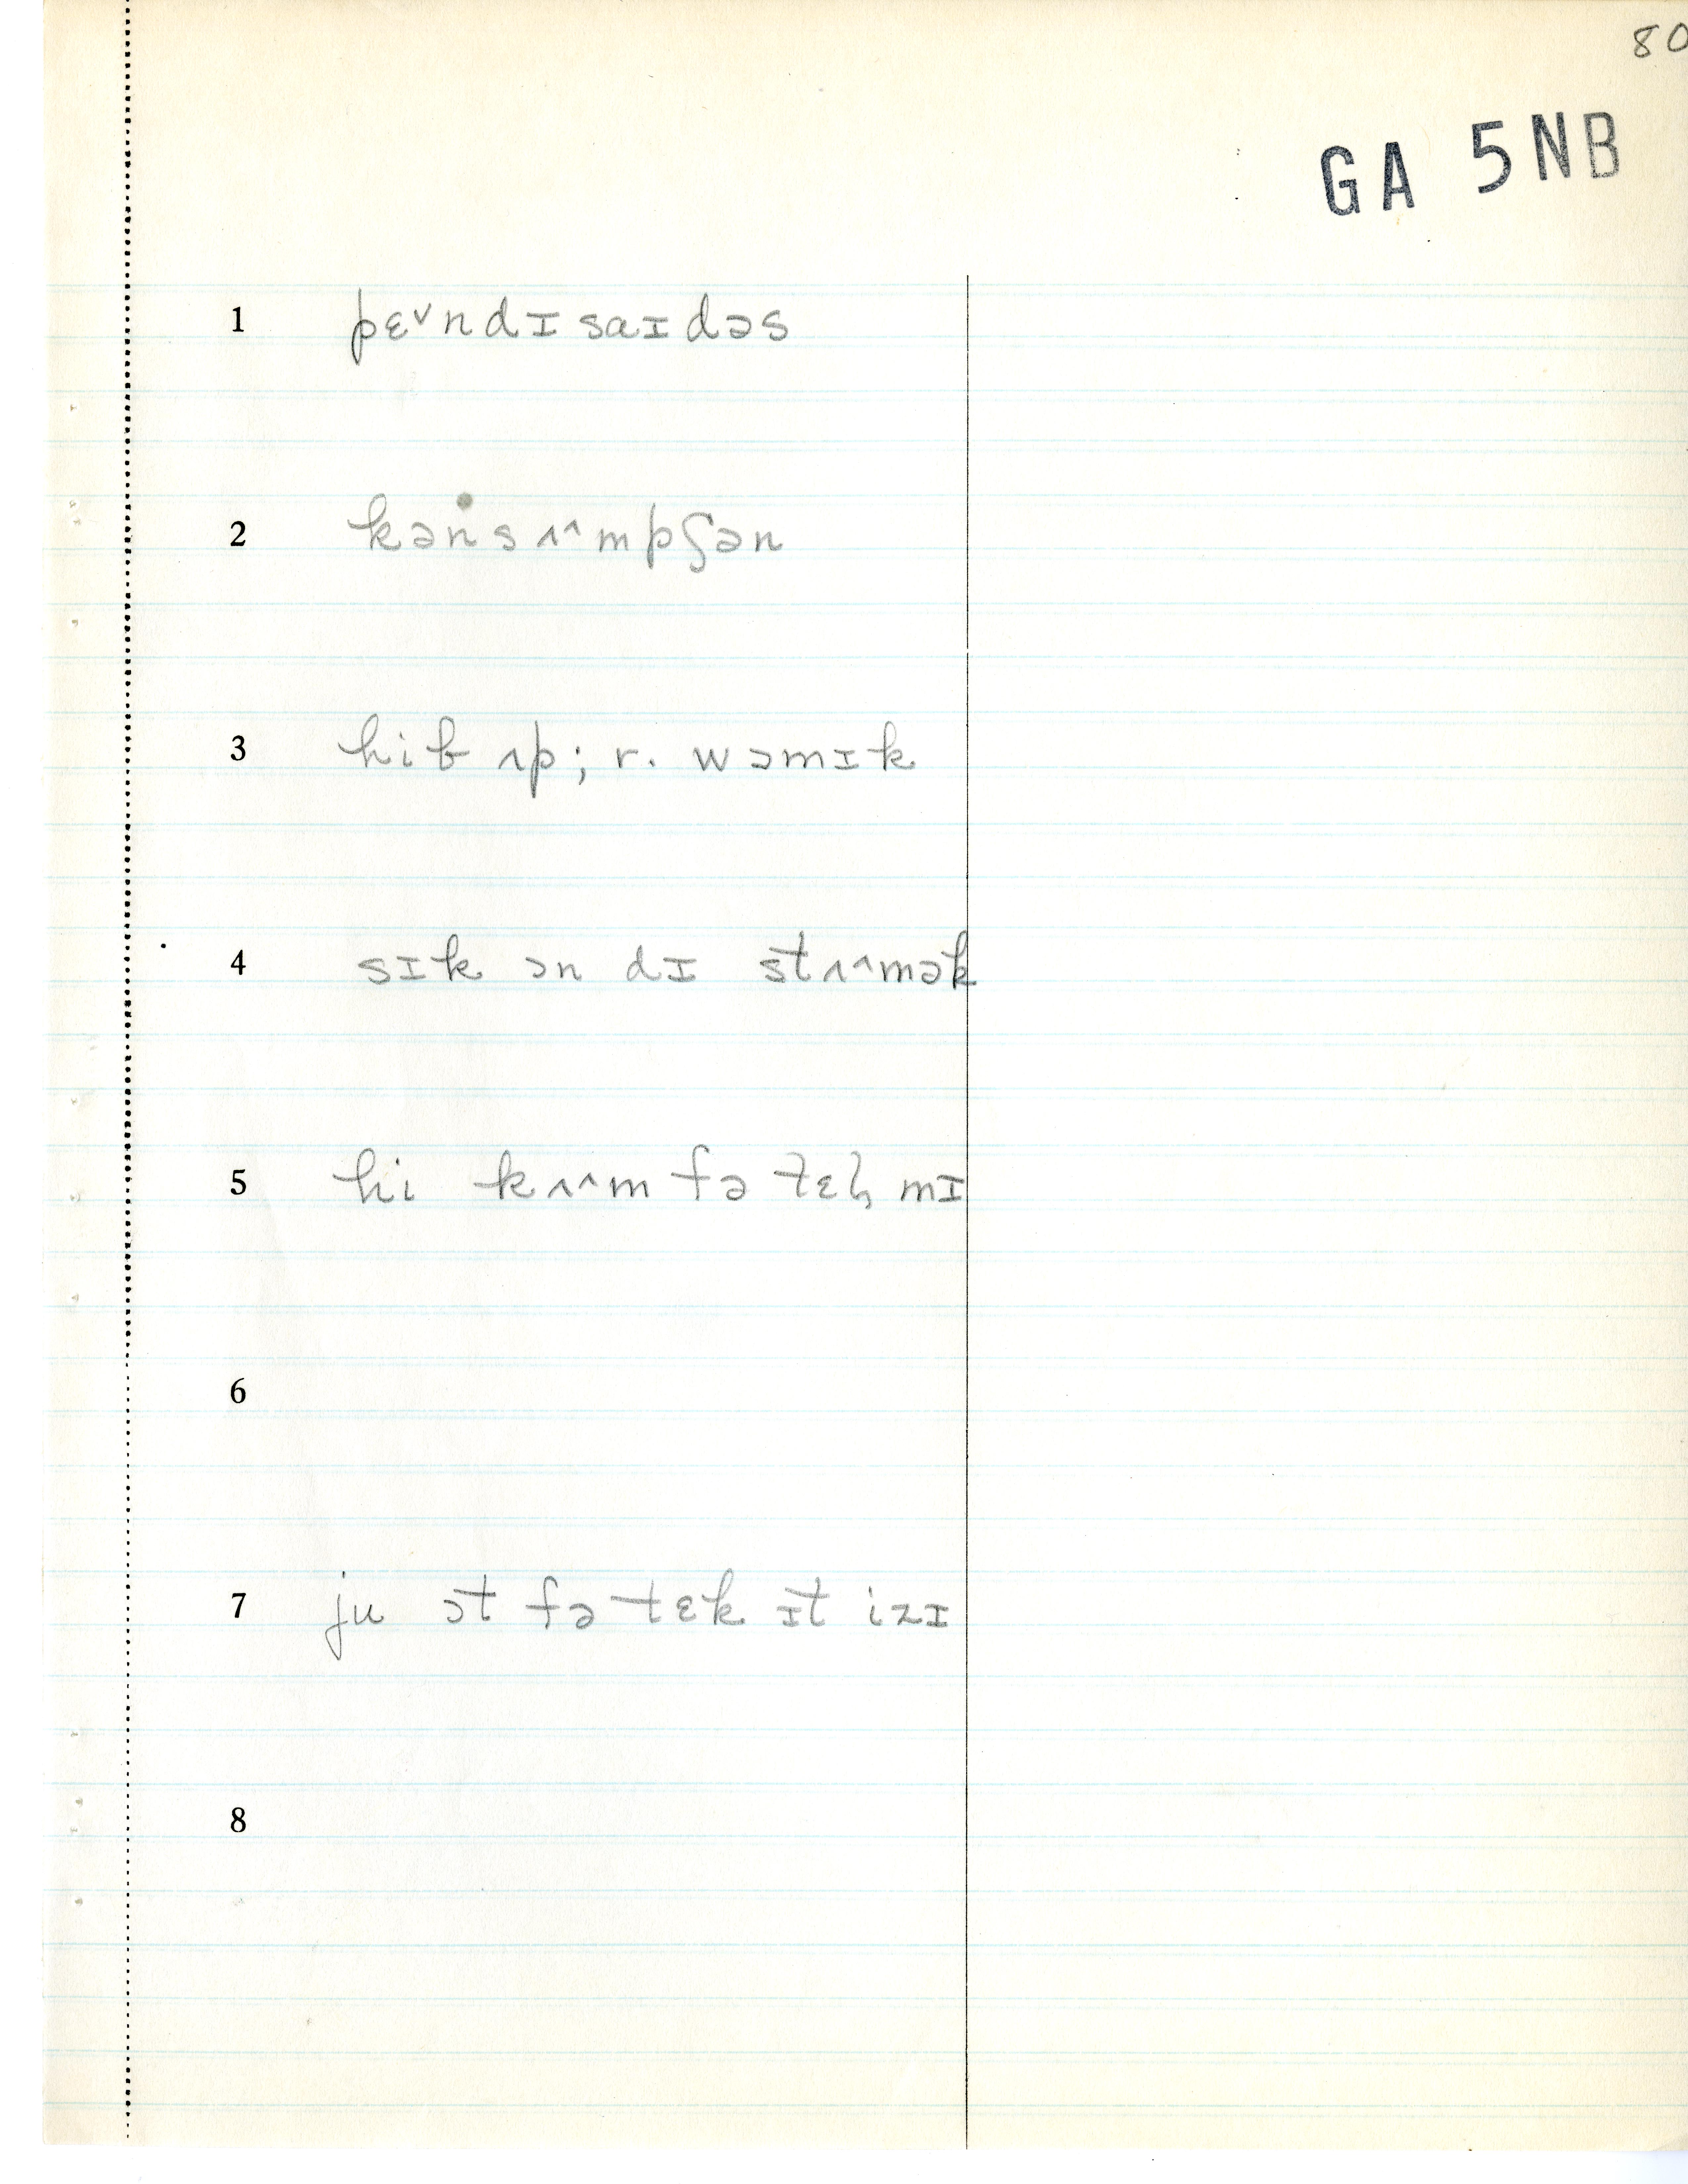 80
GA 5NB
1 pɛ˅ndɪsaɪdəs
2 kənsʌ^mpʃən
3 hib ʌp; r. wəmɪk
4 sɪk ɔn dɪ stʌ^mək
5 hi kʌ^m fə tɛl mɪ
6
7 ju ɔt fə tɛk ɪt izɪ
8